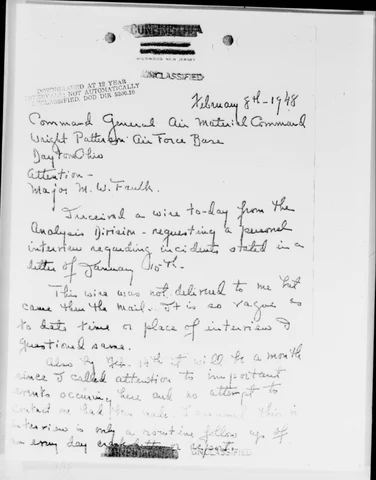 CONFIDENTIAL
UNCLASSIFIED
DOWNGRADED AT 12 YEAR
NOT AUTOMATICALLY
DECLASSIFIED. DOD DIR 5200.10
February 8th - 1948
Command General Air Material Command
Wright Patterson Air Force Base
Dayton Ohio
Attention -
Major M. W. Faulk.
I received a wire to-day from the
Analysis Division - requesting a personal
interview regarding incidents stated in a
letter of January 15th.
This wire was not delivered to me but
came thru the mail. It is so vague as
to date time or place of interview I
questioned same.
Also by Feb. 14th it will be a month
since I called attention to important
events occuring here and no attempt to
contact me had been made. I this
interview is only a routine follow up of
an every day or report.
UNCLASSIFIED